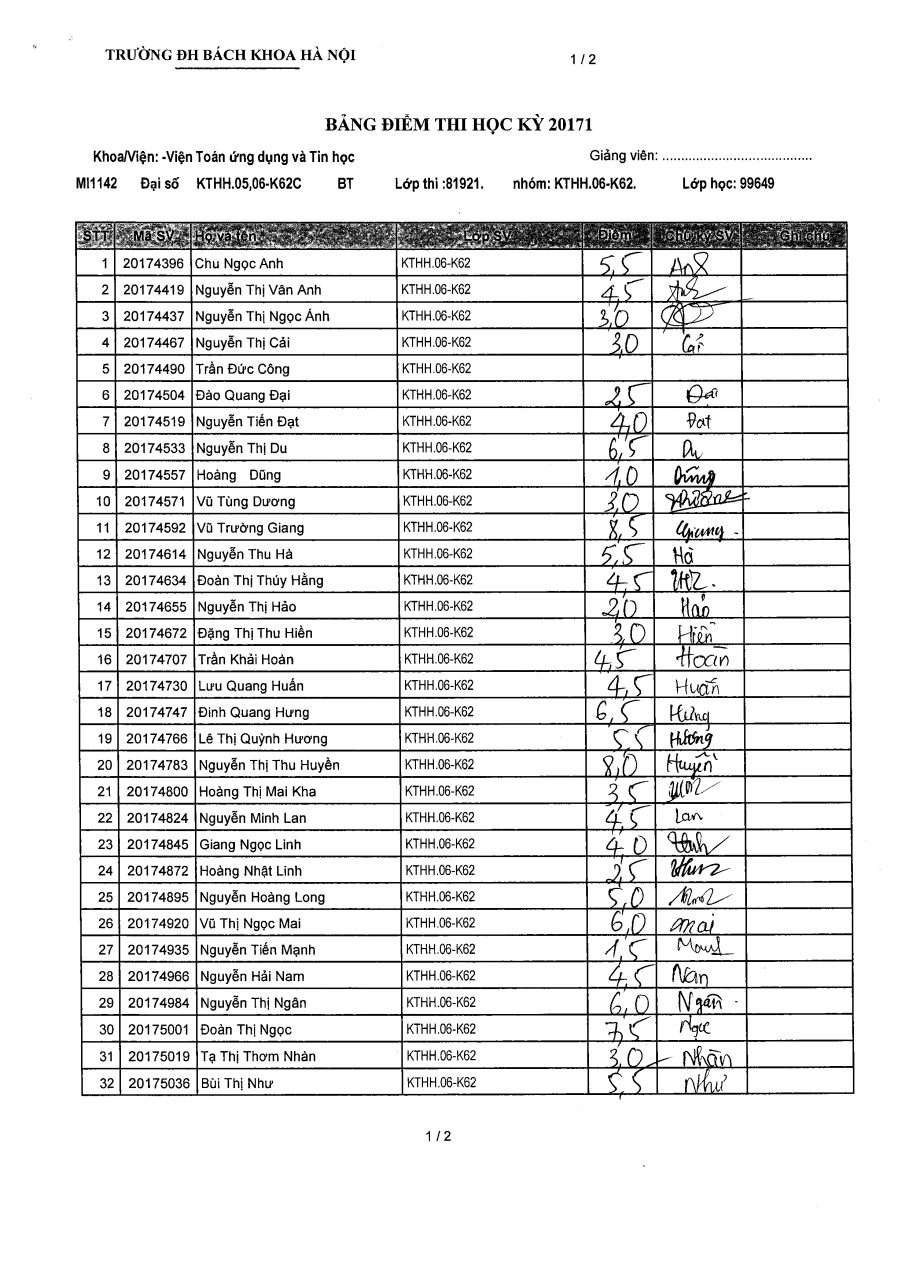 TRƯỜNG ĐH BÁCH KHOA HÀ NỘI 1 / 2
BẢNG ĐIỂM THI HỌC KỲ 20171
Khoa/Viện: -Viện Toán ứng dụng và Tin học Giảng viên: ..........................................
MI1142 Đại số KTHH.05,06-K62C BT Lớp thi :81921. nhóm: KTHH.06-K62. Lớp học: 99649
STT Mã SV Họ và tên Lớp SV Điểm Chữ ký SV Ghi chú
1 20174396 Chu Ngọc Anh KTHH.06-K62 5,5 Anh
2 20174419 Nguyễn Thị Vân Anh KTHH.06-K62 4,5 Anh
3 20174437 Nguyễn Thị Ngọc Ánh KTHH.06-K62 3,0
4 20174467 Nguyễn Thị Cải KTHH.06-K62 3,0 Cải
5 20174490 Trần Đức Công KTHH.06-K62
6 20174504 Đào Quang Đại KTHH.06-K62 2,5 Đại
7 20174519 Nguyễn Tiến Đạt KTHH.06-K62 4,0 Đạt
8 20174533 Nguyễn Thị Du KTHH.06-K62 6,5 Du
9 20174557 Hoàng Dũng KTHH.06-K62 1,0 Dũng
10 20174571 Vũ Tùng Dương KTHH.06-K62 3,0
11 20174592 Vũ Trường Giang KTHH.06-K62 8,5 Giang
12 20174614 Nguyễn Thu Hà KTHH.06-K62 5,5 Hà
13 20174634 Đoàn Thị Thúy Hằng KTHH.06-K62 4,5
14 20174655 Nguyễn Thị Hảo KTHH.06-K62 2,0 Hảo
15 20174672 Đặng Thị Thu Hiền KTHH.06-K62 3,0 Hiền
16 20174707 Trần Khải Hoàn KTHH.06-K62 4,5 Hoàn
17 20174730 Lưu Quang Huấn KTHH.06-K62 4,5 Huấn
18 20174747 Đinh Quang Hưng KTHH.06-K62 6,5 Hưng
19 20174766 Lê Thị Quỳnh Hương KTHH.06-K62 5,5 Hương
20 20174783 Nguyễn Thị Thu Huyền KTHH.06-K62 8,0 Huyền
21 20174800 Hoàng Thị Mai Kha KTHH.06-K62 3,5
22 20174824 Nguyễn Minh Lan KTHH.06-K62 4,5 Lan
23 20174845 Giang Ngọc Linh KTHH.06-K62 4,0
24 20174872 Hoàng Nhật Linh KTHH.06-K62 2,5
25 20174895 Nguyễn Hoàng Long KTHH.06-K62 5,0
26 20174920 Vũ Thị Ngọc Mai KTHH.06-K62 6,0 mai
27 20174935 Nguyễn Tiến Mạnh KTHH.06-K62 1,5
28 20174966 Nguyễn Hải Nam KTHH.06-K62 4,5 Nam
29 20174984 Nguyễn Thị Ngân KTHH.06-K62 6,0 Ngân
30 20175001 Đoàn Thị Ngọc KTHH.06-K62 7,5 Ngọc
31 20175019 Tạ Thị Thơm Nhàn KTHH.06-K62 3,0 Nhàn
32 20175036 Bùi Thị Như KTHH.06-K62 5,5 Như
1 / 2